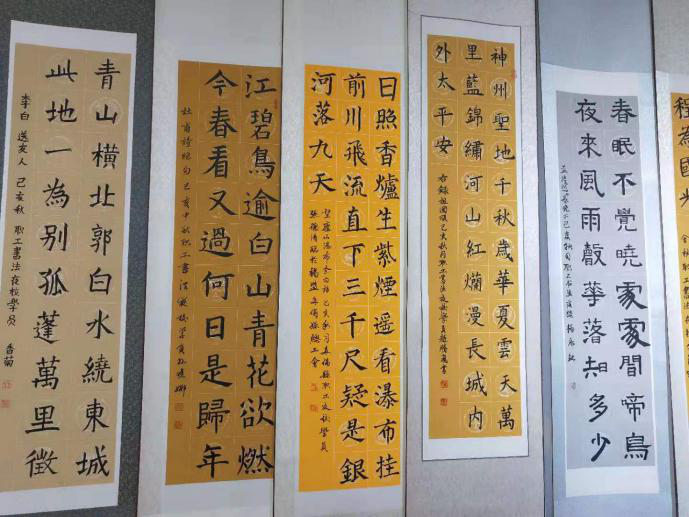 青山橫北郭白水繞東城
此地一為別孤蓬萬里徵
李白 送友人 己亥秋 职工書法夜校學员 香菊
江碧鳥逾白山青花欲燃
今春看又過何日是歸年
杜甫詩絕句己亥中秋职工書法夜校学員
日照香爐生紫煙遥看瀑布挂
前川飛流直下三千尺疑是銀
河落九天
神州聖地千秋歲華夏雲天萬
里藍錦繡河山紅爛漫長城内
外太平安
右錄祖國頌己亥秋月職工書法夜校學員
春眠不覺曉處處聞啼鳥
夜来風雨聲華落知多少
程為國